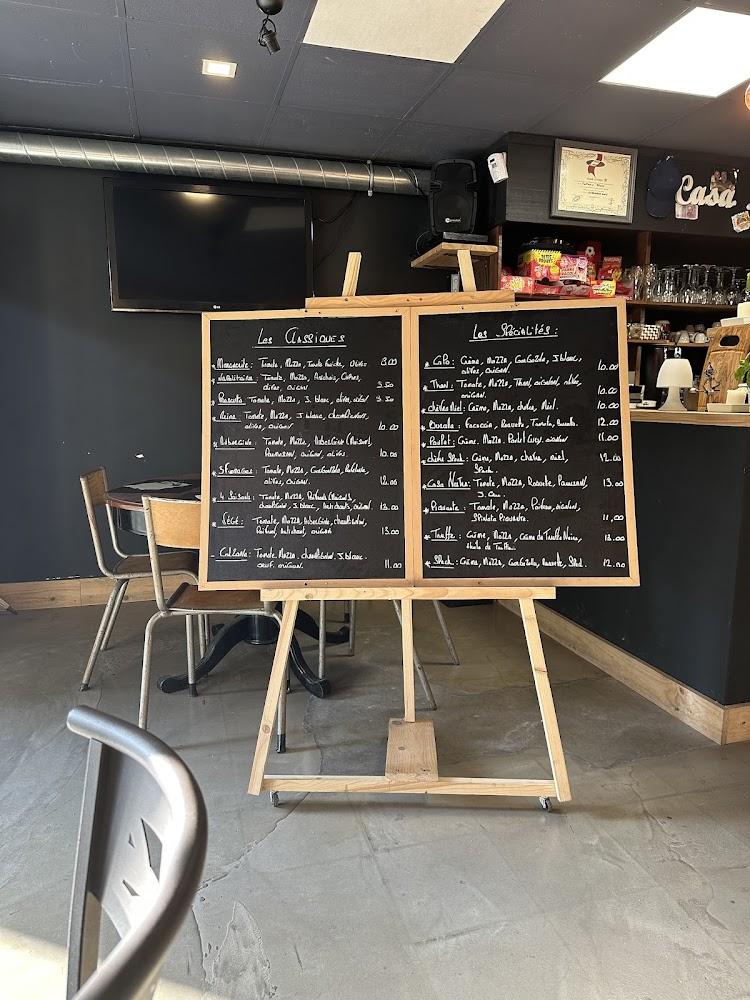 Les Classiques
Margarite: Tomate, Mozza, Tomate Fraîche, Olives 9.00
Napolitaine: Tomate, Mozza, Anchois, Capres,
olives, origan 9.50
Tomate, Mozza, J. blanc, olives, origan 9.50
Reine: Tomate, Mozza, J. blanc, champignons,
olives, origan 10.00
Tomate, Mozza,
Parmesan, origan, olives. 10.00
3 Fromages: Tomate, Mozza, Gorgonzola,
olives, origan 12.00
4 Saisons: Tomate, Mozza, Poivrons
champignons, J. blanc, Artichauts, origan 13.00
Végé: Tomate, Mozza, Aubergine, champignons,
Poivron, Artichauts, origan 13.00
Calzone: Tomate, Mozza, champignons, J. blanc.
oeuf, origan 11.00
Les Spécialités:
Crème, Mozza, Gorgonzola, J. blanc,
olives, origan. 10.00
Thon: Tomate, Mozza, Thon, oignons, olives,
origan. 10.00
chèvre Miel: Crème, Mozza, chèvre, Miel. 10.00
Burrata: Focaccia, Roquette, Tomate, Burrata. 12.00
Poulet: Crème, Mozza, Poulet Curry, oignons 11.00
chèvre Speck: Crème, Mozza, chèvre, miel,
Speck. 12.00
Casa Nostra: Tomate, Mozza, Roquette, Parmesan,
J. Cru. 13.00
Piquante: Tomate, Mozza, Poivron, oignons,
Spianata Piquante. 11,00
Truffe: Crème, Mozza, Crème de Truffe Noire,
Huile de Truffe. 13.00
Speck: Crème, Mozza, Gorgonzola, Roquette, Speck. 12.00
Casa
LG